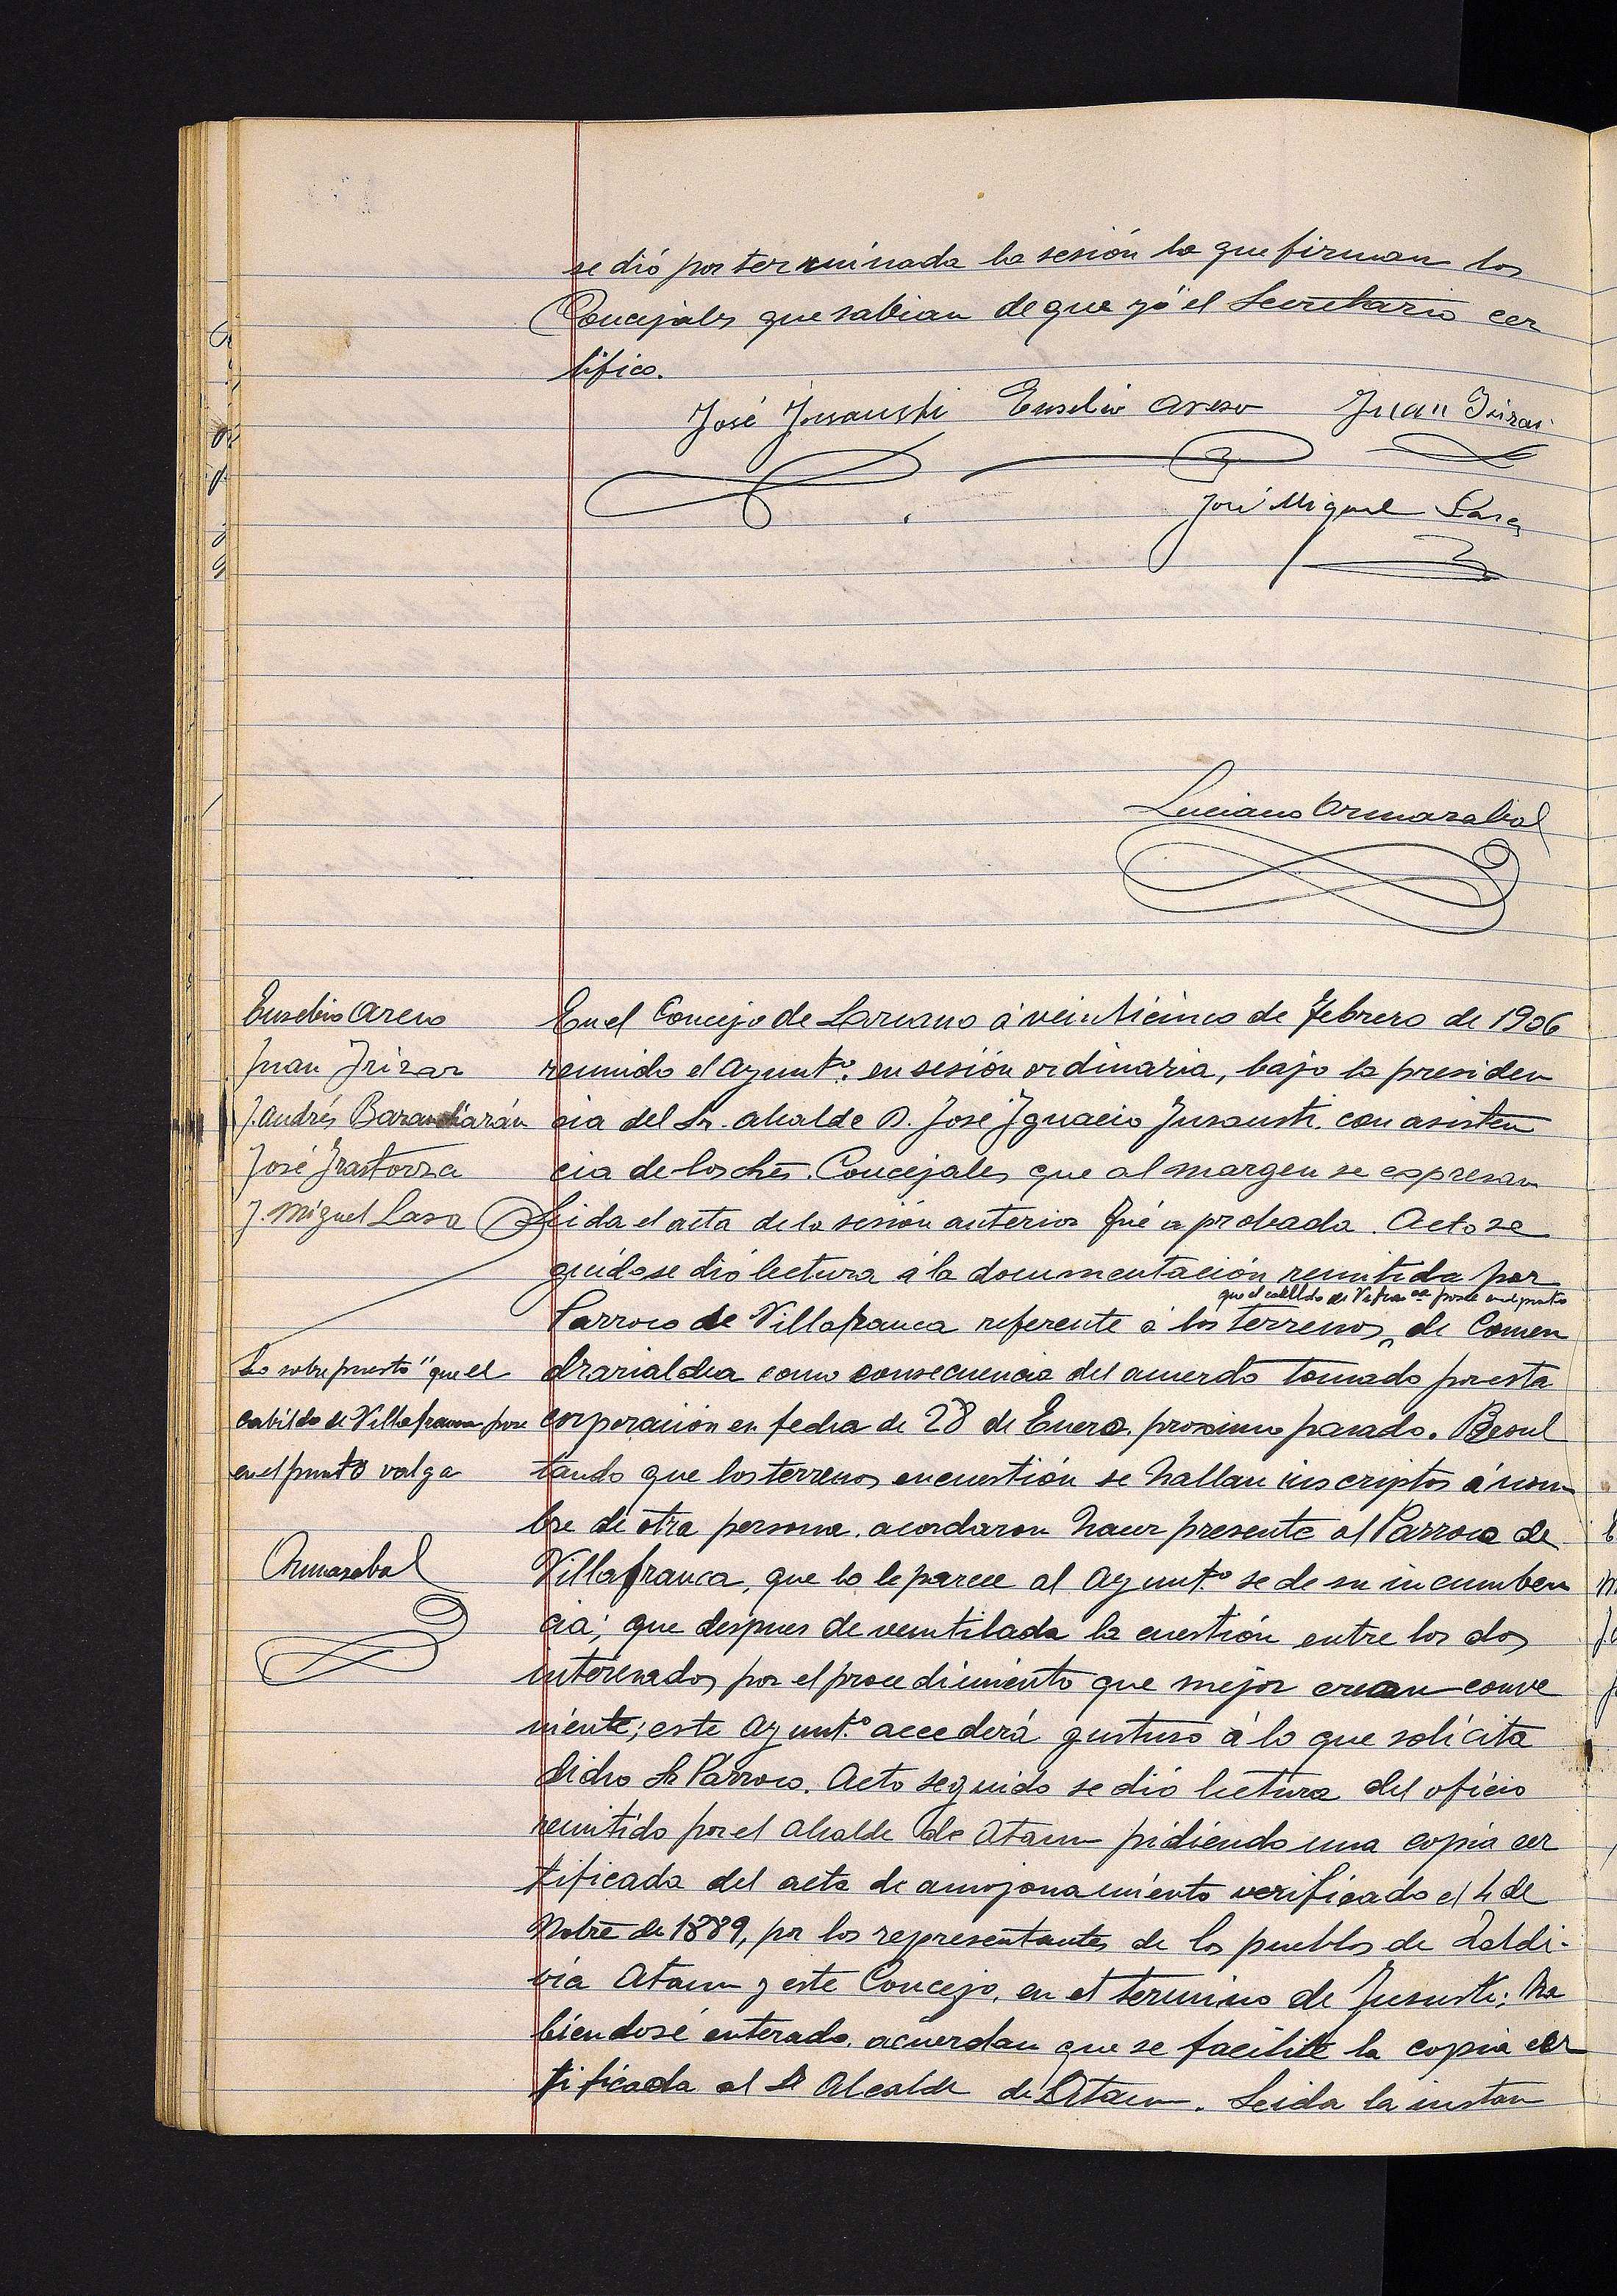 se dió por terminada la sesión la que firman los
Concejales que sabian de que yó el Secretario cer
tifico.
José Jusausti Eusebio Areso Juan Irizar
José Miguel Lasa
Luciano Ormazabal
Eusebio Areso
Juan Irizar
J. Andrés Barandiarán
José Irastorza
J. Miguel Lasa
Lo sobrepuesto "que el
cabildo de Villafranca pose
en el punto valga
Ormazabal
En el Concejo de Lazcano á veinticinco de Febrero de 1906
reunido el Ayuntº. en sesión ordinaria, bajo la presiden
cia del Sr. Alcalde D. José Ignacio Jusausti. con asisten
cia de los Concejales que al margen se expresan
Leida el acta de la sesión anterior fué aprobada. Acto se
guido se dió lectura á la documentación remitida por
que el cabildo de Vafranca posee en el punto
Parroco de Villafranca referente á los terrenos, de
como consecuencia del acuerdo tomado por esta
corporación en fecha de 28 de Enero proximo pasado. Resul
tando que los terrenos en cuestión se hallan inscriptos á nom
bre de otra persona. acordaron hacer presente al Parroco de
Villafranca, que lo le parece al Ayuntº se de su incumben
cia; que despues de ventilada la cuestión entre los dos
interesados por el procedimiento que mejor crean conve
niente; este Ayuntº accederá gustoso á lo que solicita
dicho Sr Párroco. Acto seguido se dió lectura del oficio
remitido por el Alcalde de Ataun pidiendo una copia cer
tificada del acta de amojonamiento verificado el 4 de
Nobre de 1889, por los representantes de los pueblos de Zaldi-
via Ataun y este Concejo, en el termino de Jusausti; ha
biendose enterado. acuerdan que se facilite la copia cer
tificada al Sr Alcalde de Ataun. Leida la instan